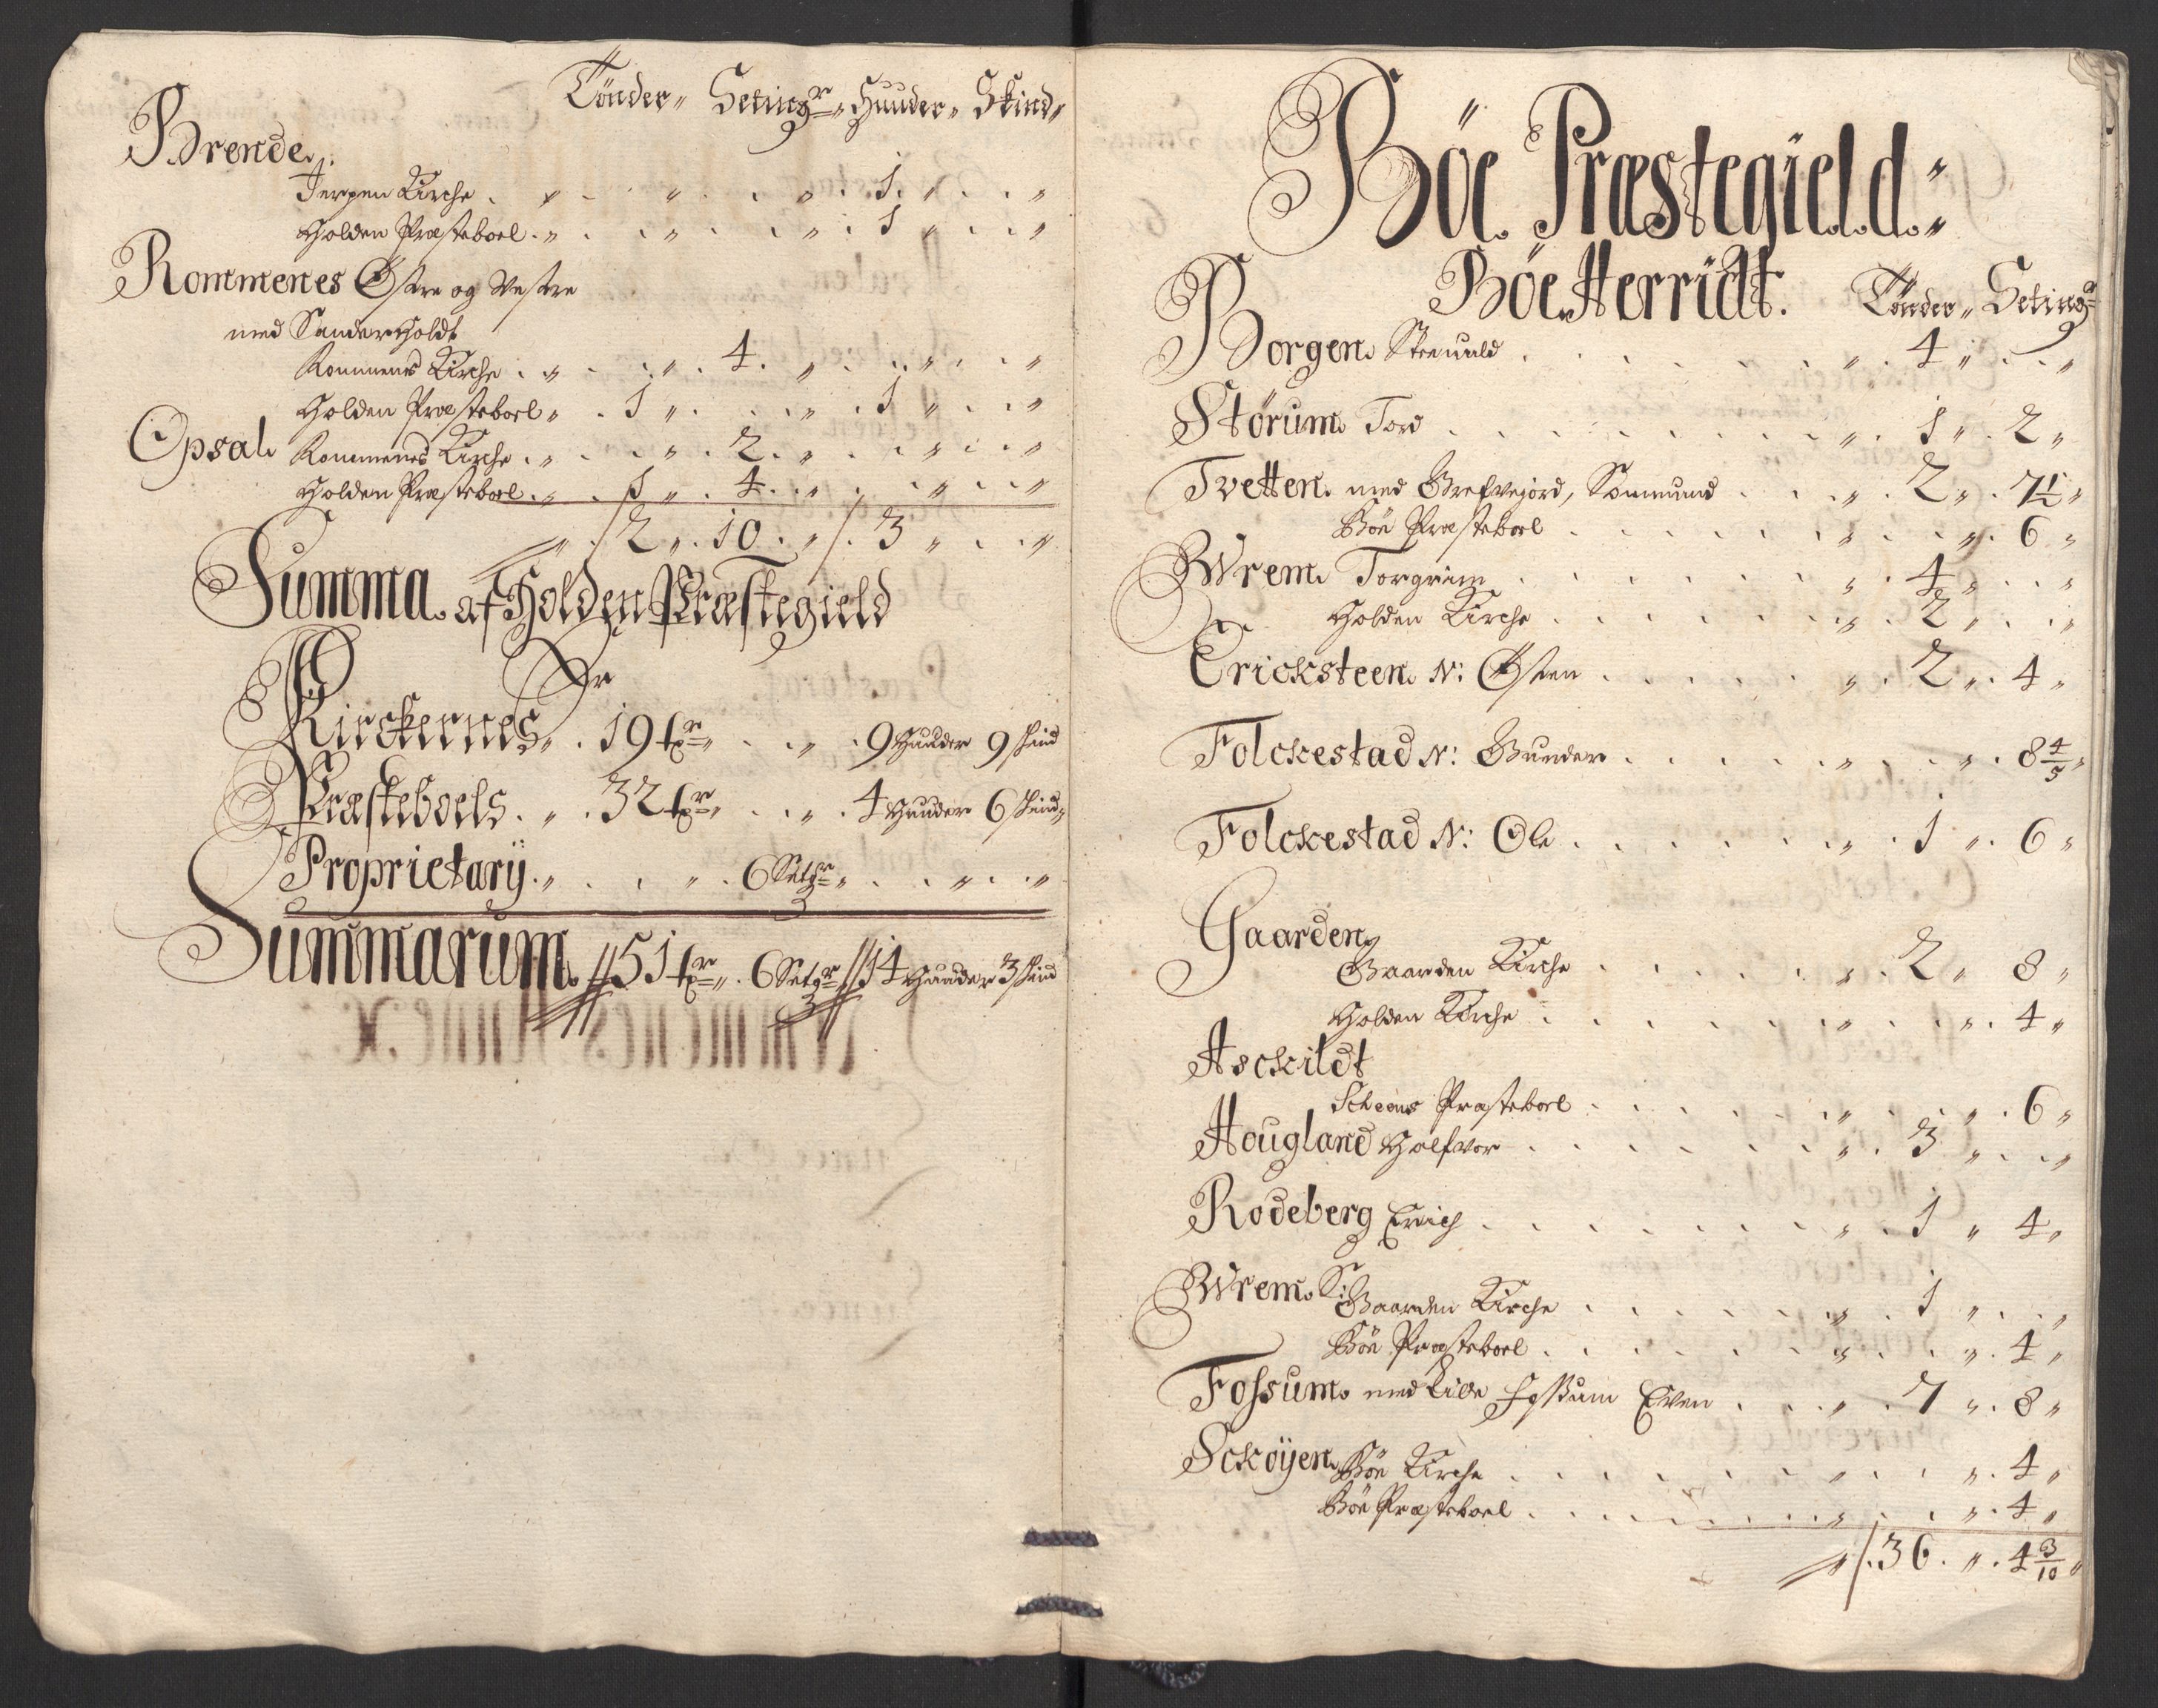 Tönder „ Setingr „ Huuder „ Skind „
Brende.
Jerpen Kirche . „ . „ . . „ . 1. „ . . „
Holden Præsteboel . „ . . „ . . „ . 1 „ . . „
Rommenes Østre og Vestre
med Sanderholdt
Rommenes Kirche . „ . . „ . 4. „ . . „ . . „
Holden Præsteboel „ . 1 „ . . „ . 1 „ . . „
Opsal. Rommenes Kirche . „ . . „ . 2. „ . . „ . . „
Holden Præsteboel . „ . 1 „ . 4. . „ . . „ . . „
„ . 2 „ . 10 . „ . 3 „ . . „
Summa. af Holden Præstegield
Er
Kirckernes „ . 19 txr „ . . „ . 9 Huuder 9 skind
Præsteboels . „ . 32 txr „ . . „ . 4 Huuder 6 skind „
Proprietarÿ . „ . . „ . 6 Setgr „ . . „ . . „
Summarum. 51 txr „ . 6 Setgr „ 14 Huuder 3 skind
Böe Præstegield.
Böe Herridt. Tönder „ Setingr
Borgen. Steenuld . . . „ . 4 „ . . „
Størum. Tord . . . „ . 1 „ . 2 „
Tvetten. med Grefvejord, Somund . . . „ . 2 „ . 7½ „
Böe Præsteboel . . . „ . . „ . 6 „
Wrem. Torgrim . . . „ . 4 „ . . „
Holden Kirche . . . „ . 2 „ . . „
Ericksteen. N: Østen . . . „ . 2 „ . 4 „
Folckestad N: Gunder . . . „ . . „ . 8 4/5 „
Folckestad N: Ole . . . „ . 1 „ . 6 „
Gaarden.
Gaarden Kirche . . . „ . 2 „ 8 „
Holden Kirche . . . „ . . „ . 4 „
Asckildt
Scheens Præsteboel . . . „ . . „ . 6 „
Hougland Halfvor . . . „ . 3 „ . . „
Rodeberg Erich . . . „ . 1 „ 4 „
Wrem. S:
Gaarden Kirche . . . „ . 1 „ . . „
Böe Præsteboel . . . „ . . „ . 4 „
Fossum. med Lille Fossum Even . . . „ . 7 „ . 8 „
Sckoÿen. Böe Kirche . . . „ . . „ . 4 „
Böe Præsteboel . . . „ . . „ . 4 „
„ . 36 . „ . 4 3/10 „